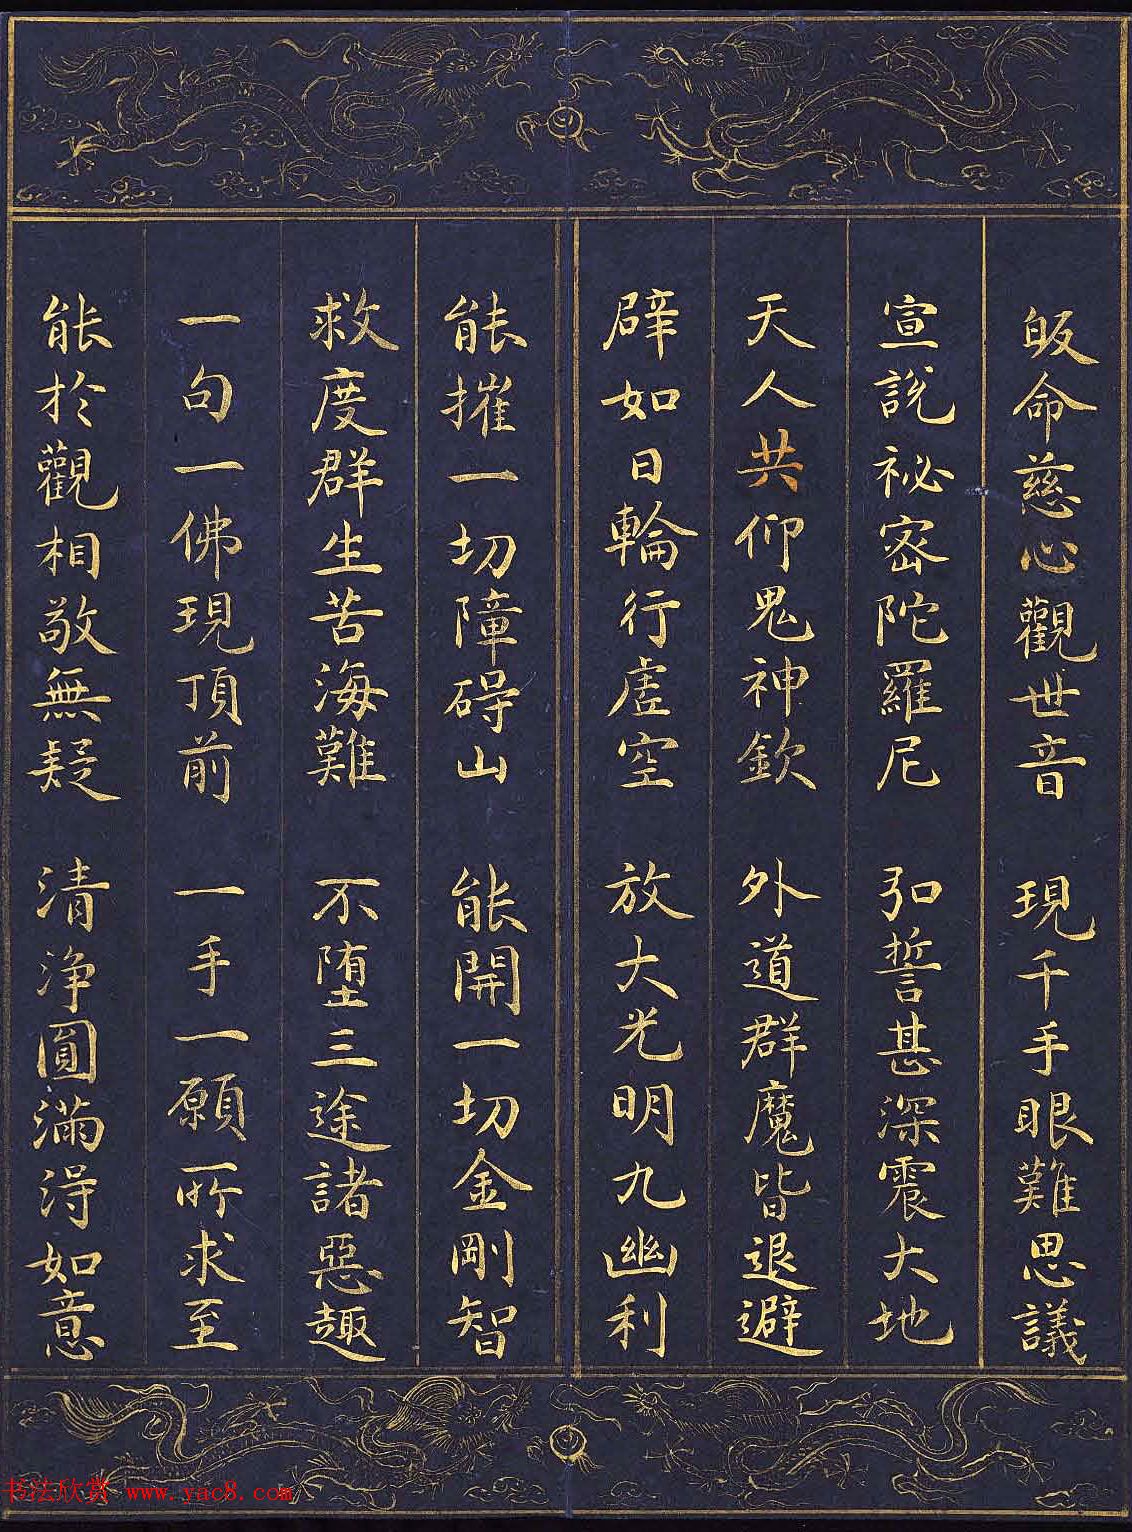 皈命慈心觀世音 現千手眼難思議
宣說祕密陀羅尼 弘誓甚深震大地
天人共仰鬼神欽 外道群魔皆退避
辟如日輪行虛空 放大光明九幽利
能摧一切障碍山 能開一切金剛智
救度群生苦海難 不堕三途諸惡趣
一句一佛現頂前 一手一願所求至
能於觀相敬無疑 清淨圓滿得如意
书法欣赏 www.yac8.com